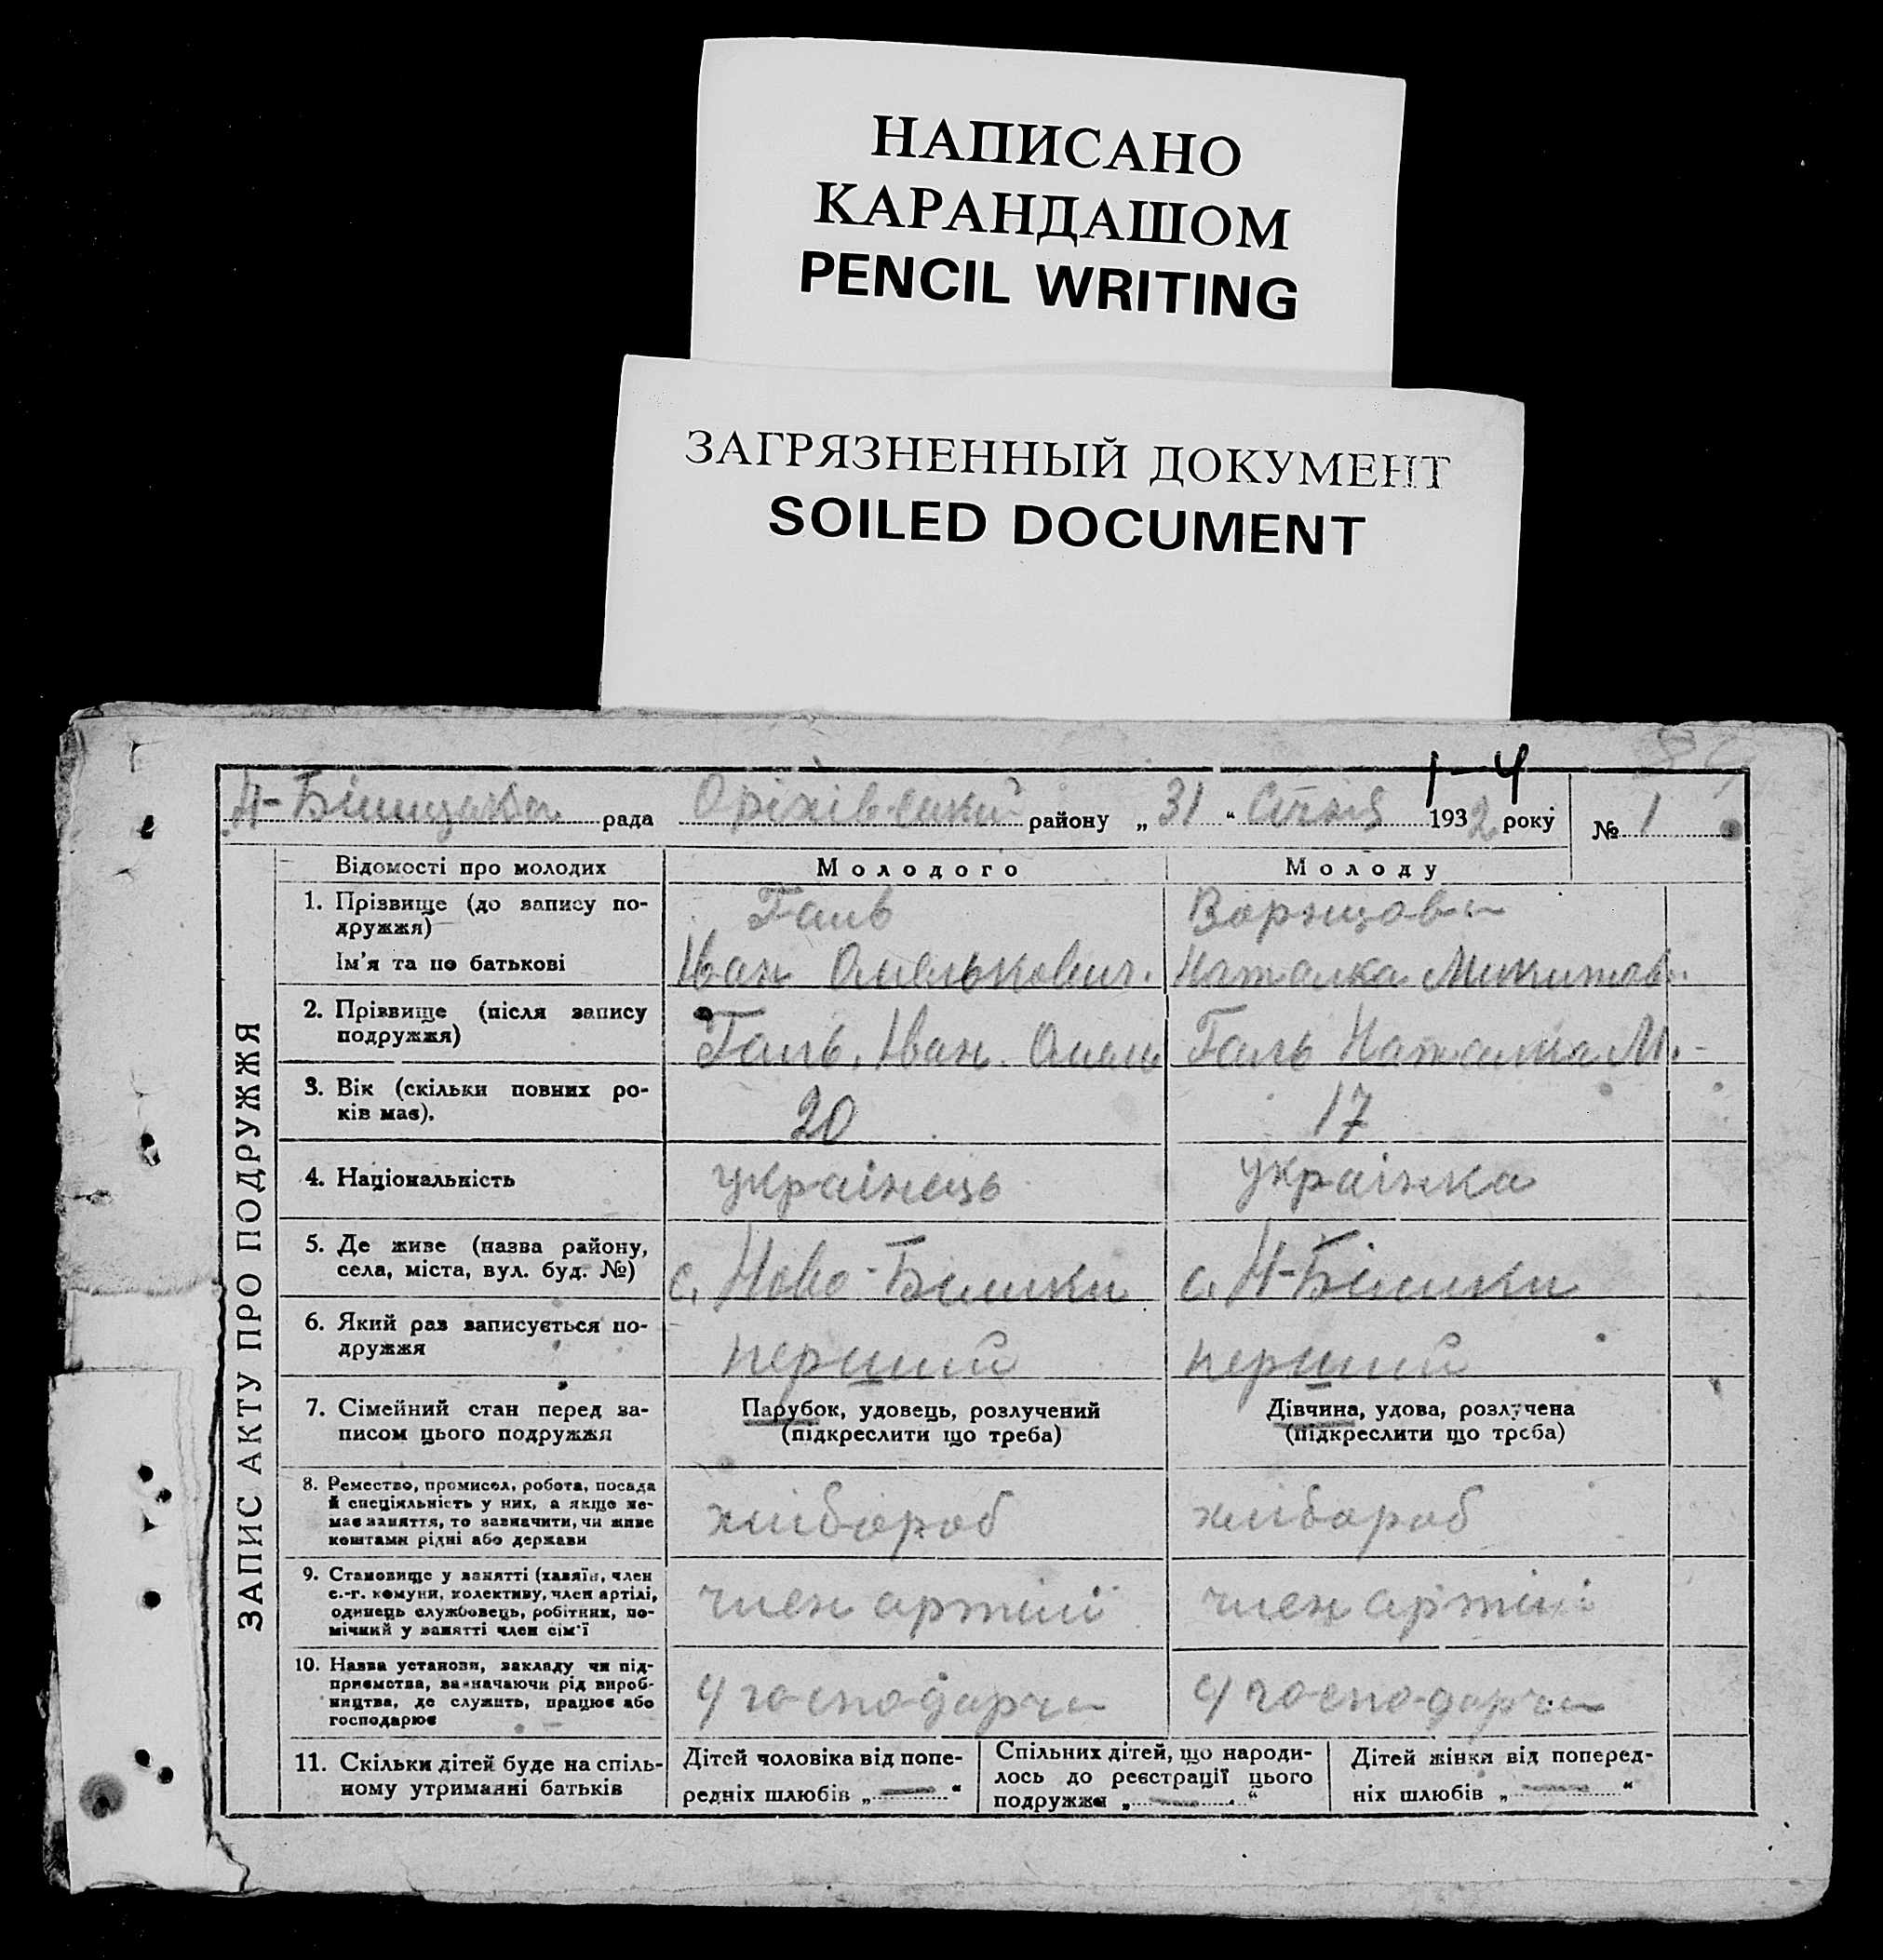 НАПИСАНО
КАРАНДАШОМ
PENCIL WRITING
ЗАГРЯЗНЕННЫЙ ДОКУМЕНТ
SOILED DOCUMENT
1-4
рада Оріхівський району „31“ Січня 1932 року № 1
ЗАПИС АКТУ ПРО ПОДРУЖЖЯ
Відомості про молодих Молодого Молоду
1. Прізвище (до запису по-
дружжя)
Галь
Ім'я та по батькові
Іван Омелькович. Наталка Микитов.
2. Прізвище (після запису
подружжя)
Галь Іван Омель Галь Наталка М.
3. Вік (скільки повних ро-
ків має).
20 17
4. Національність українець українка
5. Де живе (назва району,
села, міста, вул. буд. №)
с. Ново-Білики с. Н-Білики
6. Який раз записується по-
дружжя
перший перший
7. Сімейний стан перед за-
писом цього подружжя
Парубок, удовець, розлучений
(підкреслити що треба)
Дівчина, удова, розлучена
(підкреслити що треба)
8. Ремество, промисел, робота, посада
й спеціяльність у них, а якщо не-
має заняття, то зазначити, чи живе
коштами рідні або держави
хлібороб хлібороб
9. Становище у занятті (хазяїн, член
с.-г. комуни, колективу, член артілі,
одинець службовець, робітник, по-
мічний у занятті член сім'ї
член артілі член артілі
10. Назва установи, закладу чи під-
приємства, зазначаючи рід вироб-
ництва, де служить, працює або
господарює
11. Скільки дітей буде на спіль-
ному утриманні батьків
Дітей чоловіка від попе-
редніх шлюбів „—“
Спільних дітей, що народи-
лось до реєстрації цього
подружжя „—“
Дітей жінки від поперед-
ніх шлюбів „—“